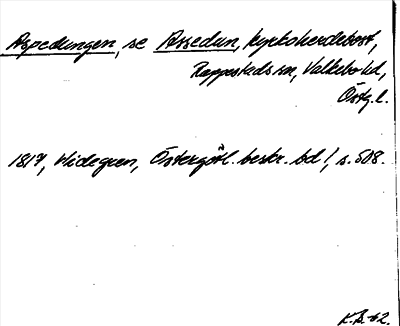 Aspedungen, se Assedun, kyrkoherdebost,
Rappestads sn, Valkebo hd,
Östg.l.
1817, Widegren, Östergötl. beskr. bd 1, s. 508.
K.B. -62.